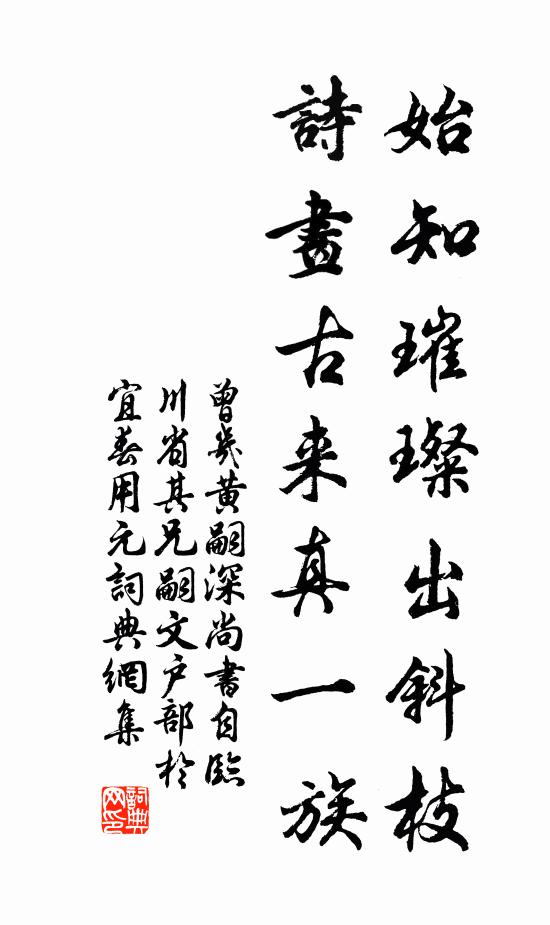 始知璀璨出斜枝
詩畫古来真一族
曾幾黄嗣深尚書自臨
川省其兄嗣文户部於
宜春用元詞典網集
詞典
网印